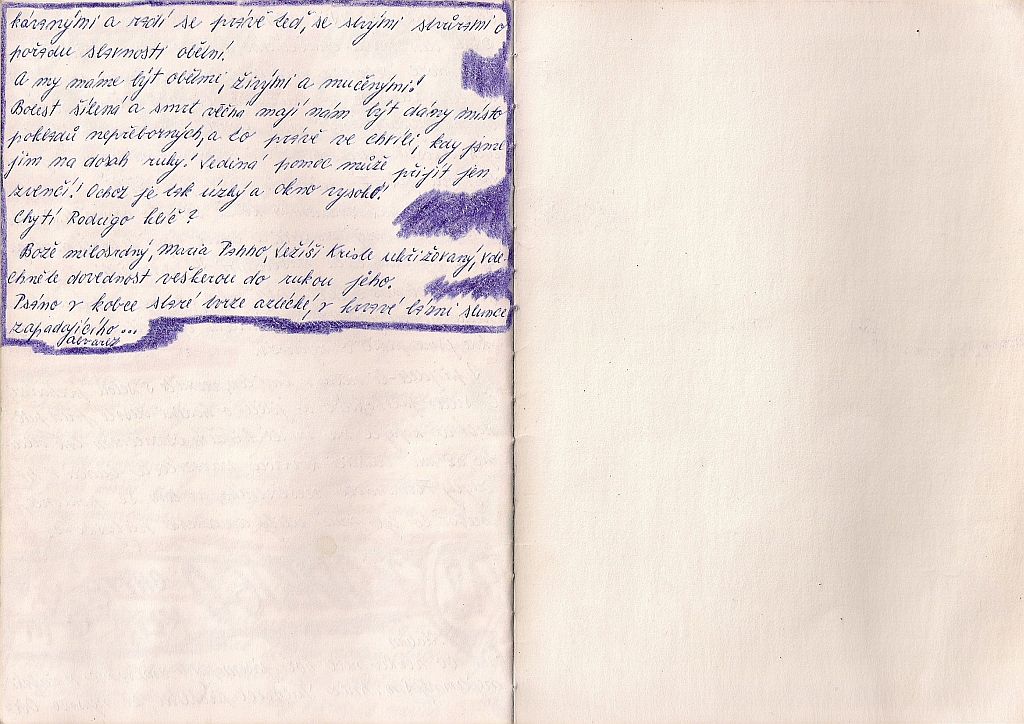 kázanými a radí se právě teď, se slujími stvůrami o
pořadu slavnosti obětní.
A my máme být obětmi, živými a mučenými!
Bolest šílená a smrt věčná mají nám být dány místo
pokladů nepřeborných, a to právě ve chvíli, kdy jsme
jim na dosah ruky! Jediná pomoc může přijít jen
zvenčí! Ochoz je tak úzký a okno vysoko!
Chytí Rodrigo klíč?
Bože milosrdný, Maria Panno, Ježíši Kriste ukřižovaný, vde-
chněte dovednost veškerou do rukou jeho.
Psáno v kobce staré tvrze aztécké, v krvavé lázni slunce
zapadajícího...
Alvarez